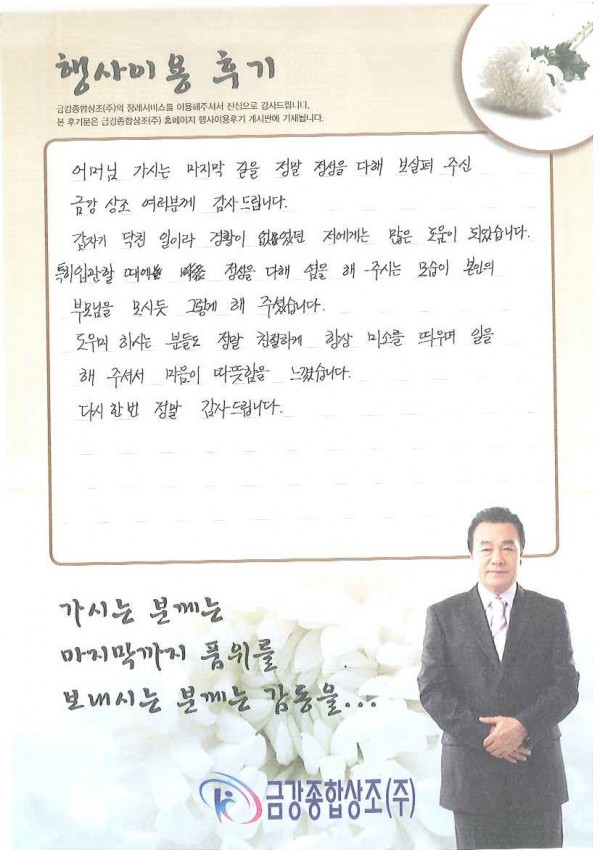 행사이용 후기
금강종합상조(주)의 장례서비스를 이용해주셔서 진심으로 감사드립니다.
본 후기문은 금강종합상조(주) 홈페이지 행사이용후기 게시판에 기재됩니다.
어머님 가시는 마지막 길을 정말 정성을 다해 보살펴 주신
금강 상조 여러분께 감사드립니다.
갑자기 닥친 일이라 경황이 없었던 저에게는 많은 도움이 되었습니다.
특히입관할 때에는 정성을 다해 염을 해 주시는 모습이 본인의
부모님을 모시듯 그렇게 해 주셨습니다.
도우미 하시는 분들도 정말 친절하게 항상 미소를 띄우며 일을
해 주셔서 마음이 따뜻함을 느꼈습니다.
다시 한번 정말 감사드립니다.
가시는 분께는
마지막까지 품위를
보내시는 분께는 감동을...
금강종합상조(주)